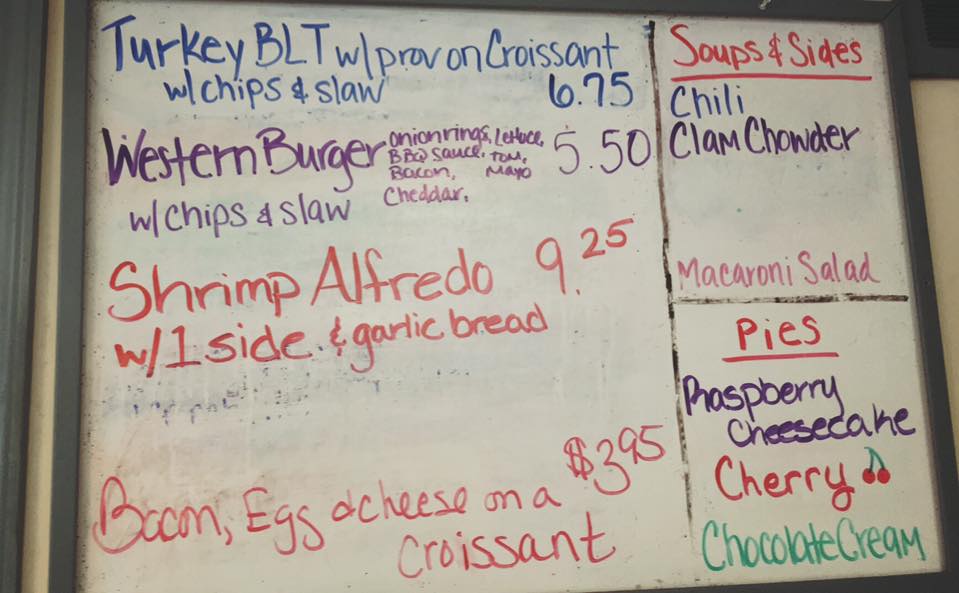 Turkey BLT w/ prov on Croissant
w/chips & slaw 6.75
Western Burger onion rings, Lettuce, 5.50
BBQ Sauce, Tom,
Bacon, Mayo
Cheddar,
w/chips & slaw
Shrimp Alfredo 9.25
w/1 side & garlic bread
$3.95
Bacon, Egg & cheese on a
Croissant
Soups & Sides
Chili
Clam Chowder
Macaroni Salad
Pies
Raspberry
Cheesecake
Cherry
Chocolate Cream